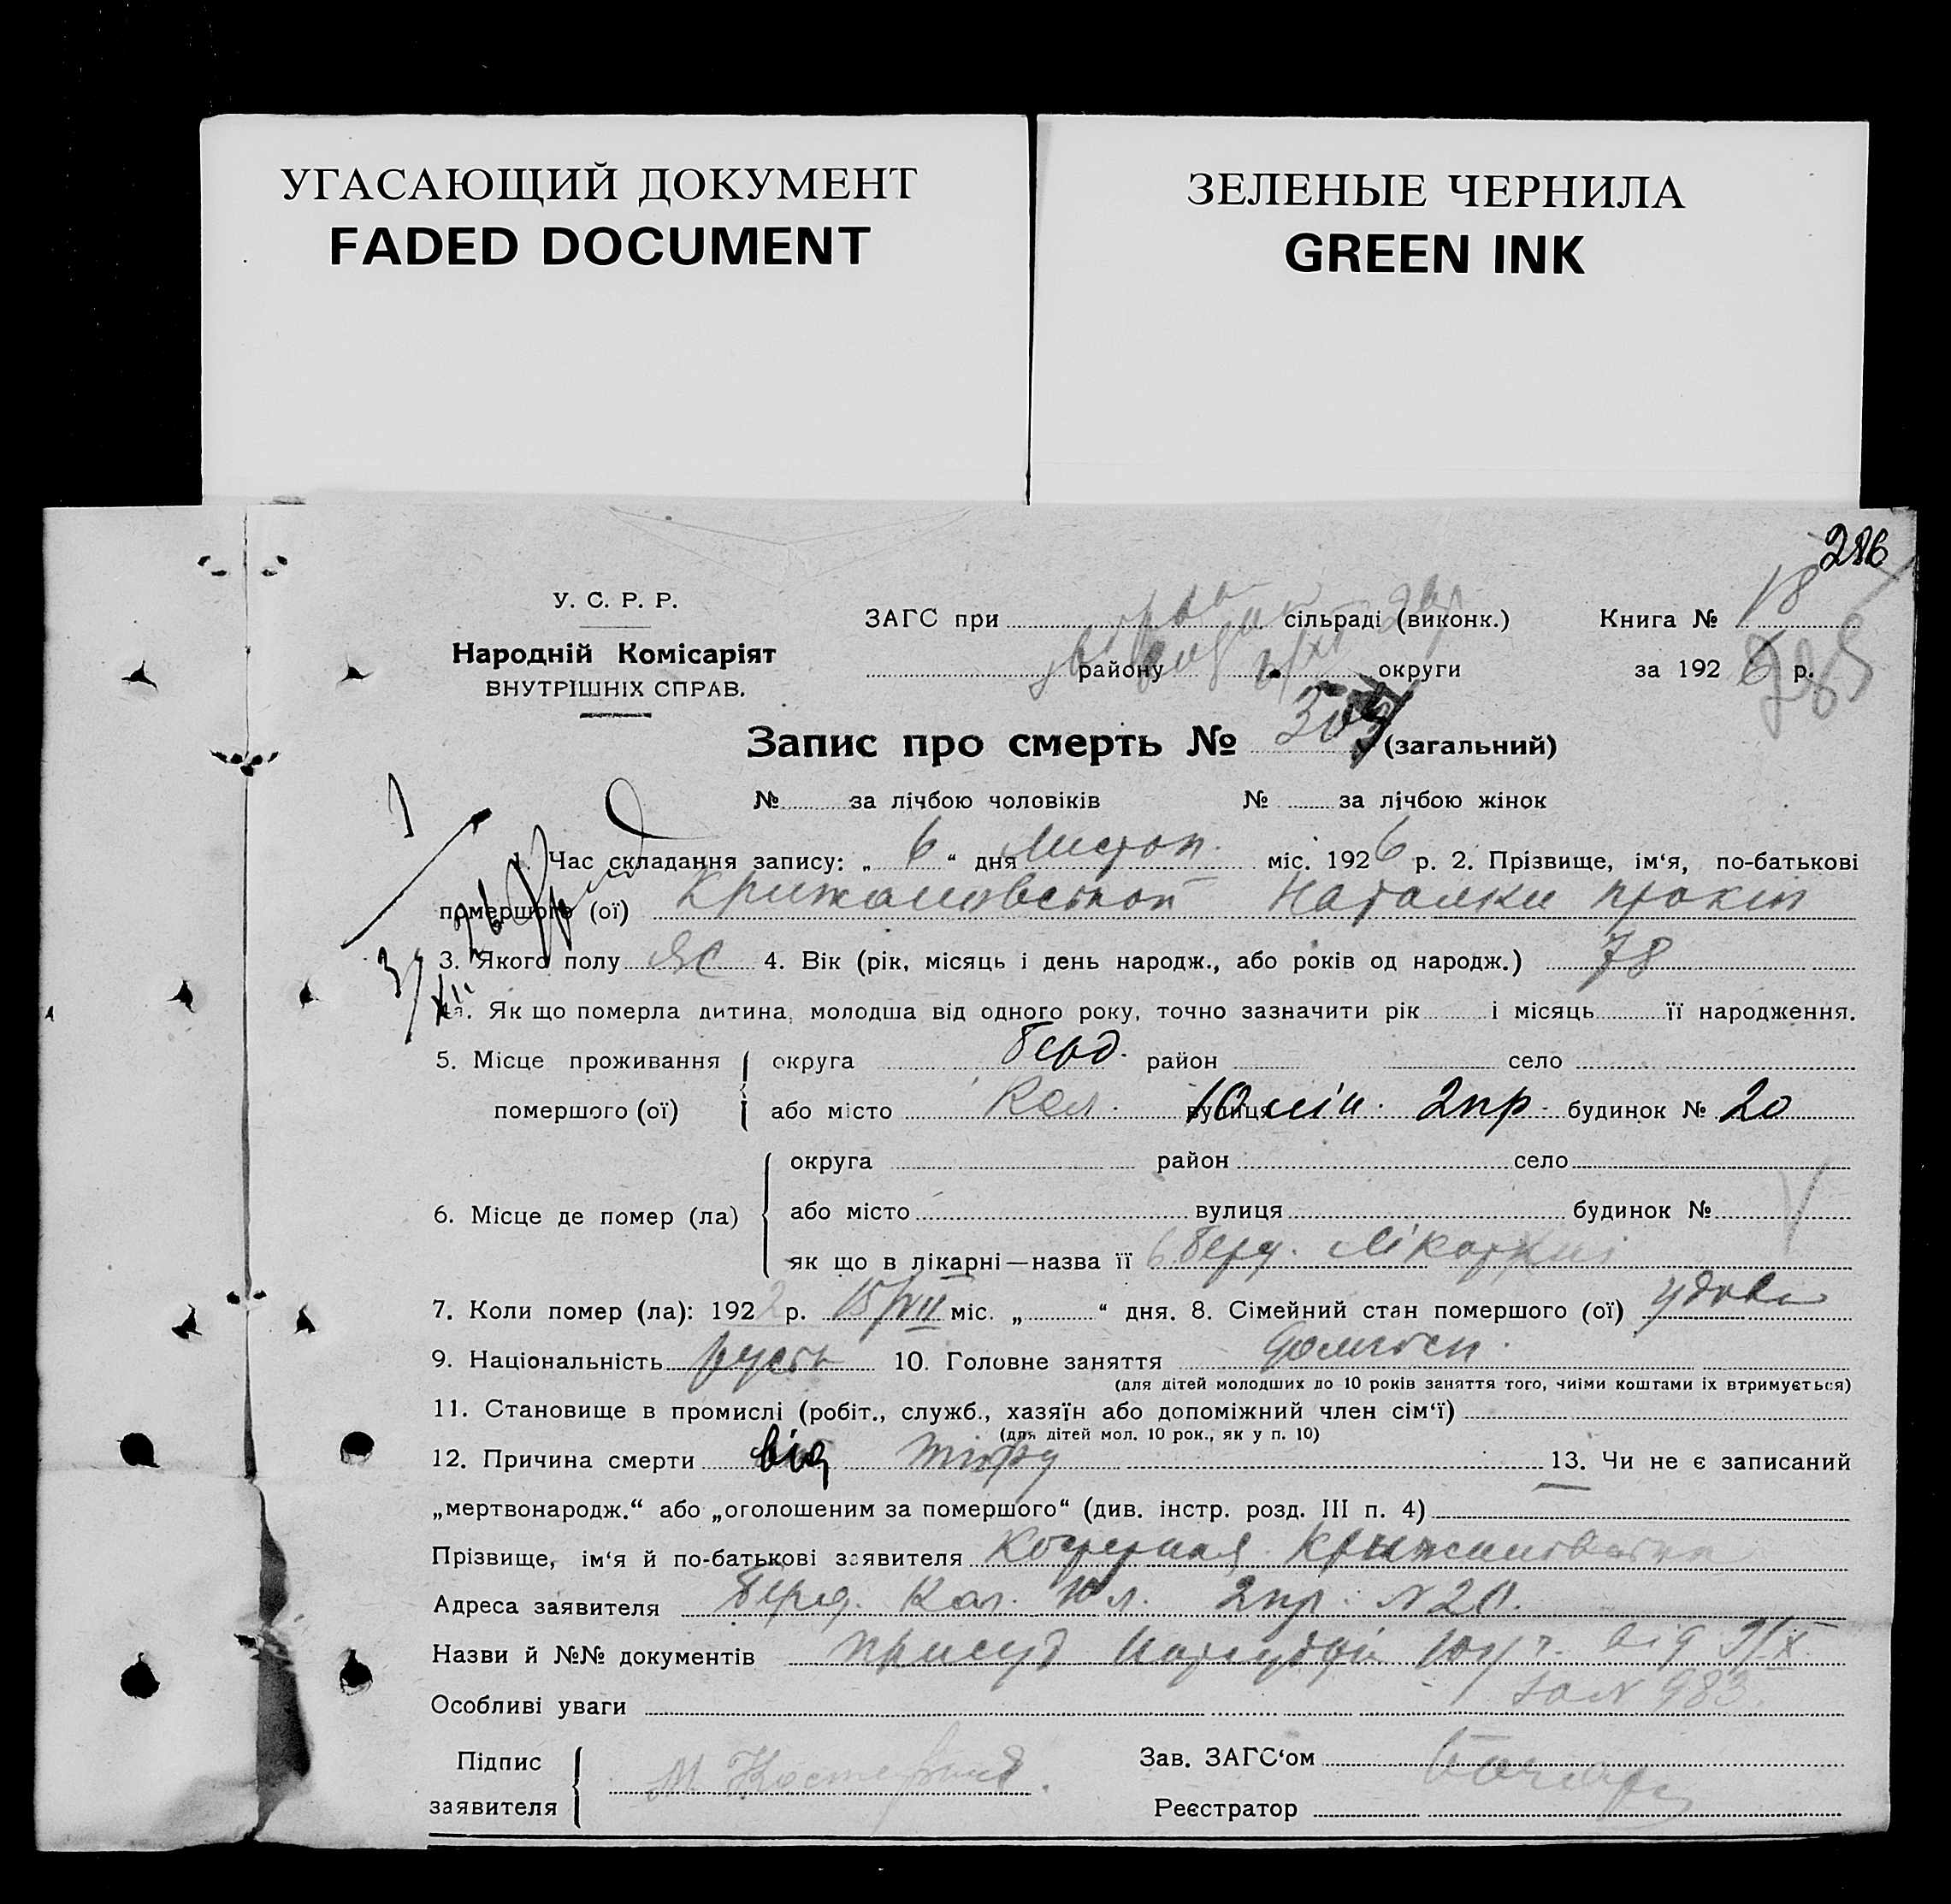 УГАСАЮЩИЙ ДОКУМЕНТ
FADED DOCUMENT
ЗЕЛЕНЫЕ ЧЕРНИЛА
GREEN INK
286
У. С. Р. Р.
Народній Комісаріят
ВНУТРІШНІХ СПРАВ.
ЗАГС при сільраді (виконк.)
району округи
Книга № 18
за 1926 р.
285
Запис про смерть № (загальний)
№ за лічбою чоловіків № за лічбою жінок
1. Час складання запису: „ 6 “ дня Листоп. міс. 1926 р. 2. Прізвище, ім‘я, по-батькові
помершого (ої) Крижановської Наталки
3. Якого полу 4. Вік (рік, місяць і день народж., або років од народж.) 78
4а. Як що померла дитина, молодша від одного року, точно зазначити рік і місяць її народження.
5. Місце проживання помершого (ої)
округа Берд. район село
або місто Кол. вулиця Юлін. 2 пр. будинок № 20
6. Місце де помер (ла)
округа район село
або місто вулиця будинок №
як що в лікарні—назва її Берд. Лікарні
7. Коли помер (ла): 1922 р. 15/VII міс. „ “ дня. 8. Сімейний стан помершого (ої) удова
9. Національність руськ 10. Головне заняття домгосп.
(для дітей молодших до 10 років заняття того, чиіми коштами іх втримується)
11. Становище в промислі (робіт., служб., хазяїн або допоміжний член сім‘ї)
(для дітей мол. 10 рок., як у п. 10)
12. Причина смерти від тифу 13. Чи не є записаний
„мертвонародж.“ або „оголошеним за помершого“ (див. інстр. розд. III п. 4)
Прізвище, ім‘я й по-батькові заявителя Крижановська
Адреса заявителя Берд. Кол. Юл. 2 пр. № 20.
Назви й №№ документів присуд Нарсуду від X
Особливі уваги за № 983.
Підпис заявителя
Зав. ЗАГС‘ом
Реєстратор